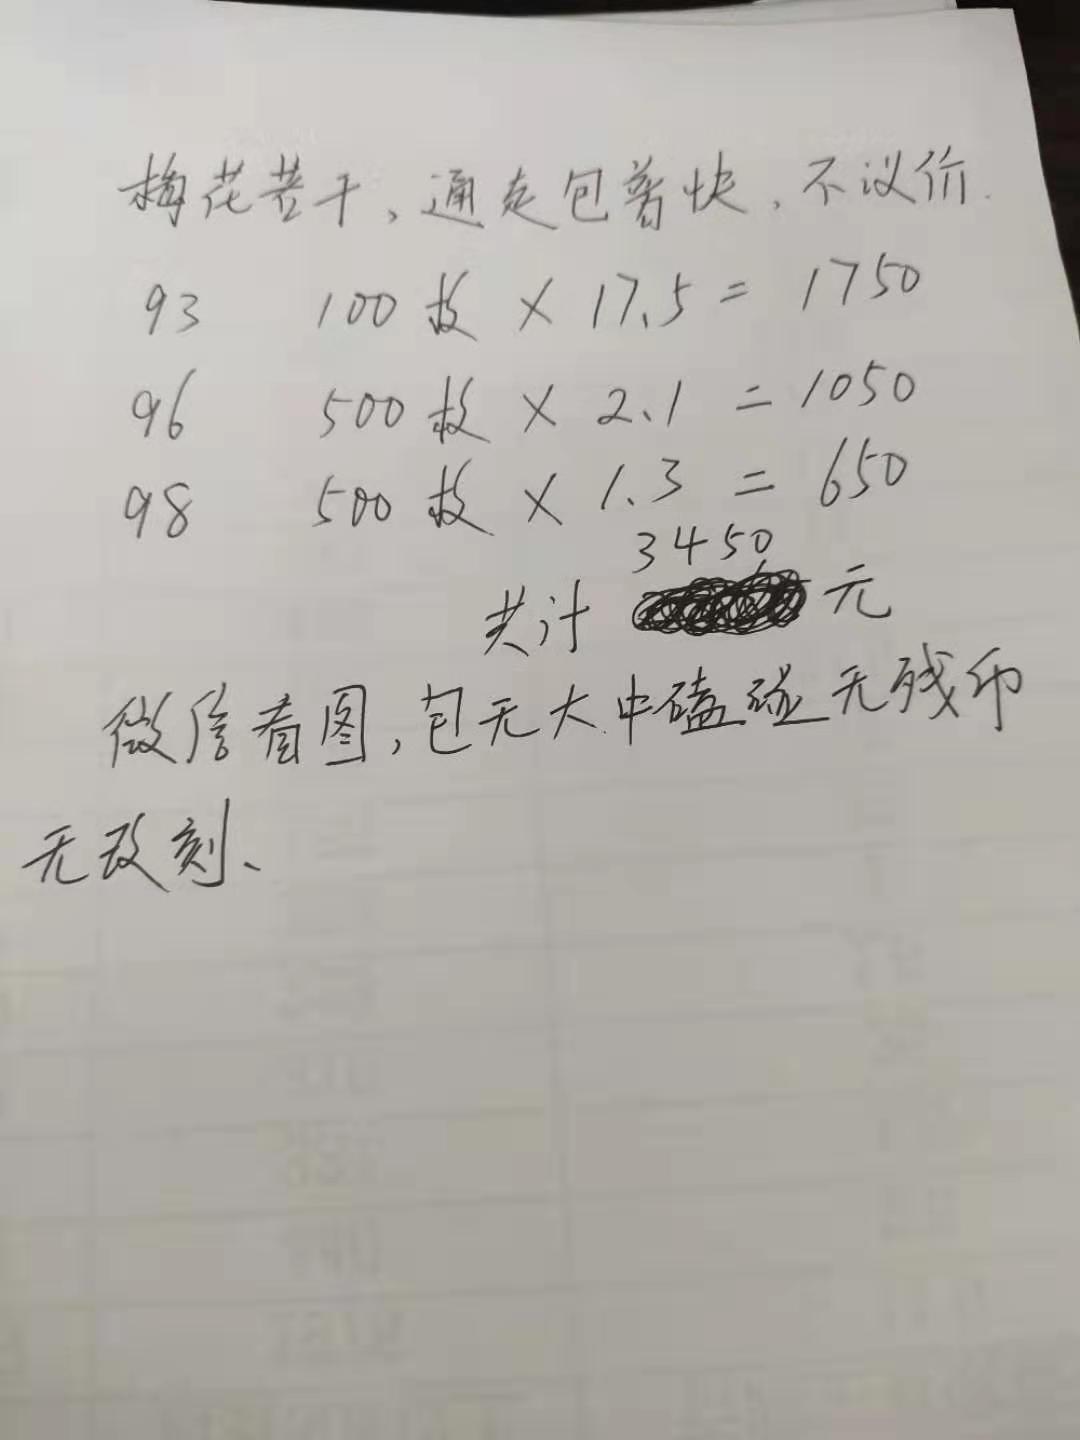 梅花若干，通走包普快，不议价.
93 100枚 × 17.5 = 1750
96 500枚 × 2.1 = 1050
98 500枚 × 1.3 = 650
3450
共计 元
微信看图，包无大中磕碰无残币
无改刻、